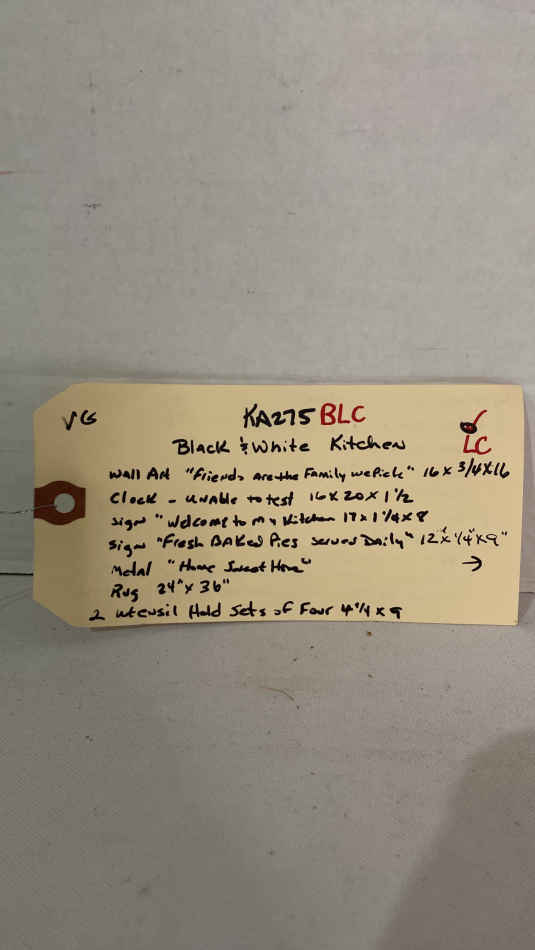 VG
KA275 BLC
LC
Black & White Kitchen
Wall Art "Friends are the Family we Pick" 16 x 3/4 x 16
Clock - unable to test 16 x 20 x 1 1/2
Sign "Welcome to My Kitchen 17 x 1 1/4 x 8
Sign "Fresh BAKed Pies Served Daily" 12" x 1/4" x 9"
Metal "Home Sweet Home" →
Rug 24" x 36"
2 utensil Hold Sets of Four 4 1/4 x 9